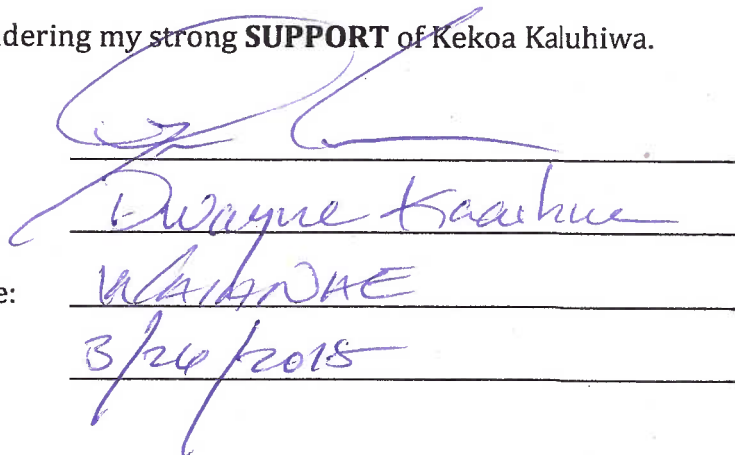 dering my strong SUPPORT of Kekoa Kaluhiwa.
Dwayne Kaaihue
e: WAIANAE
3/26/2015